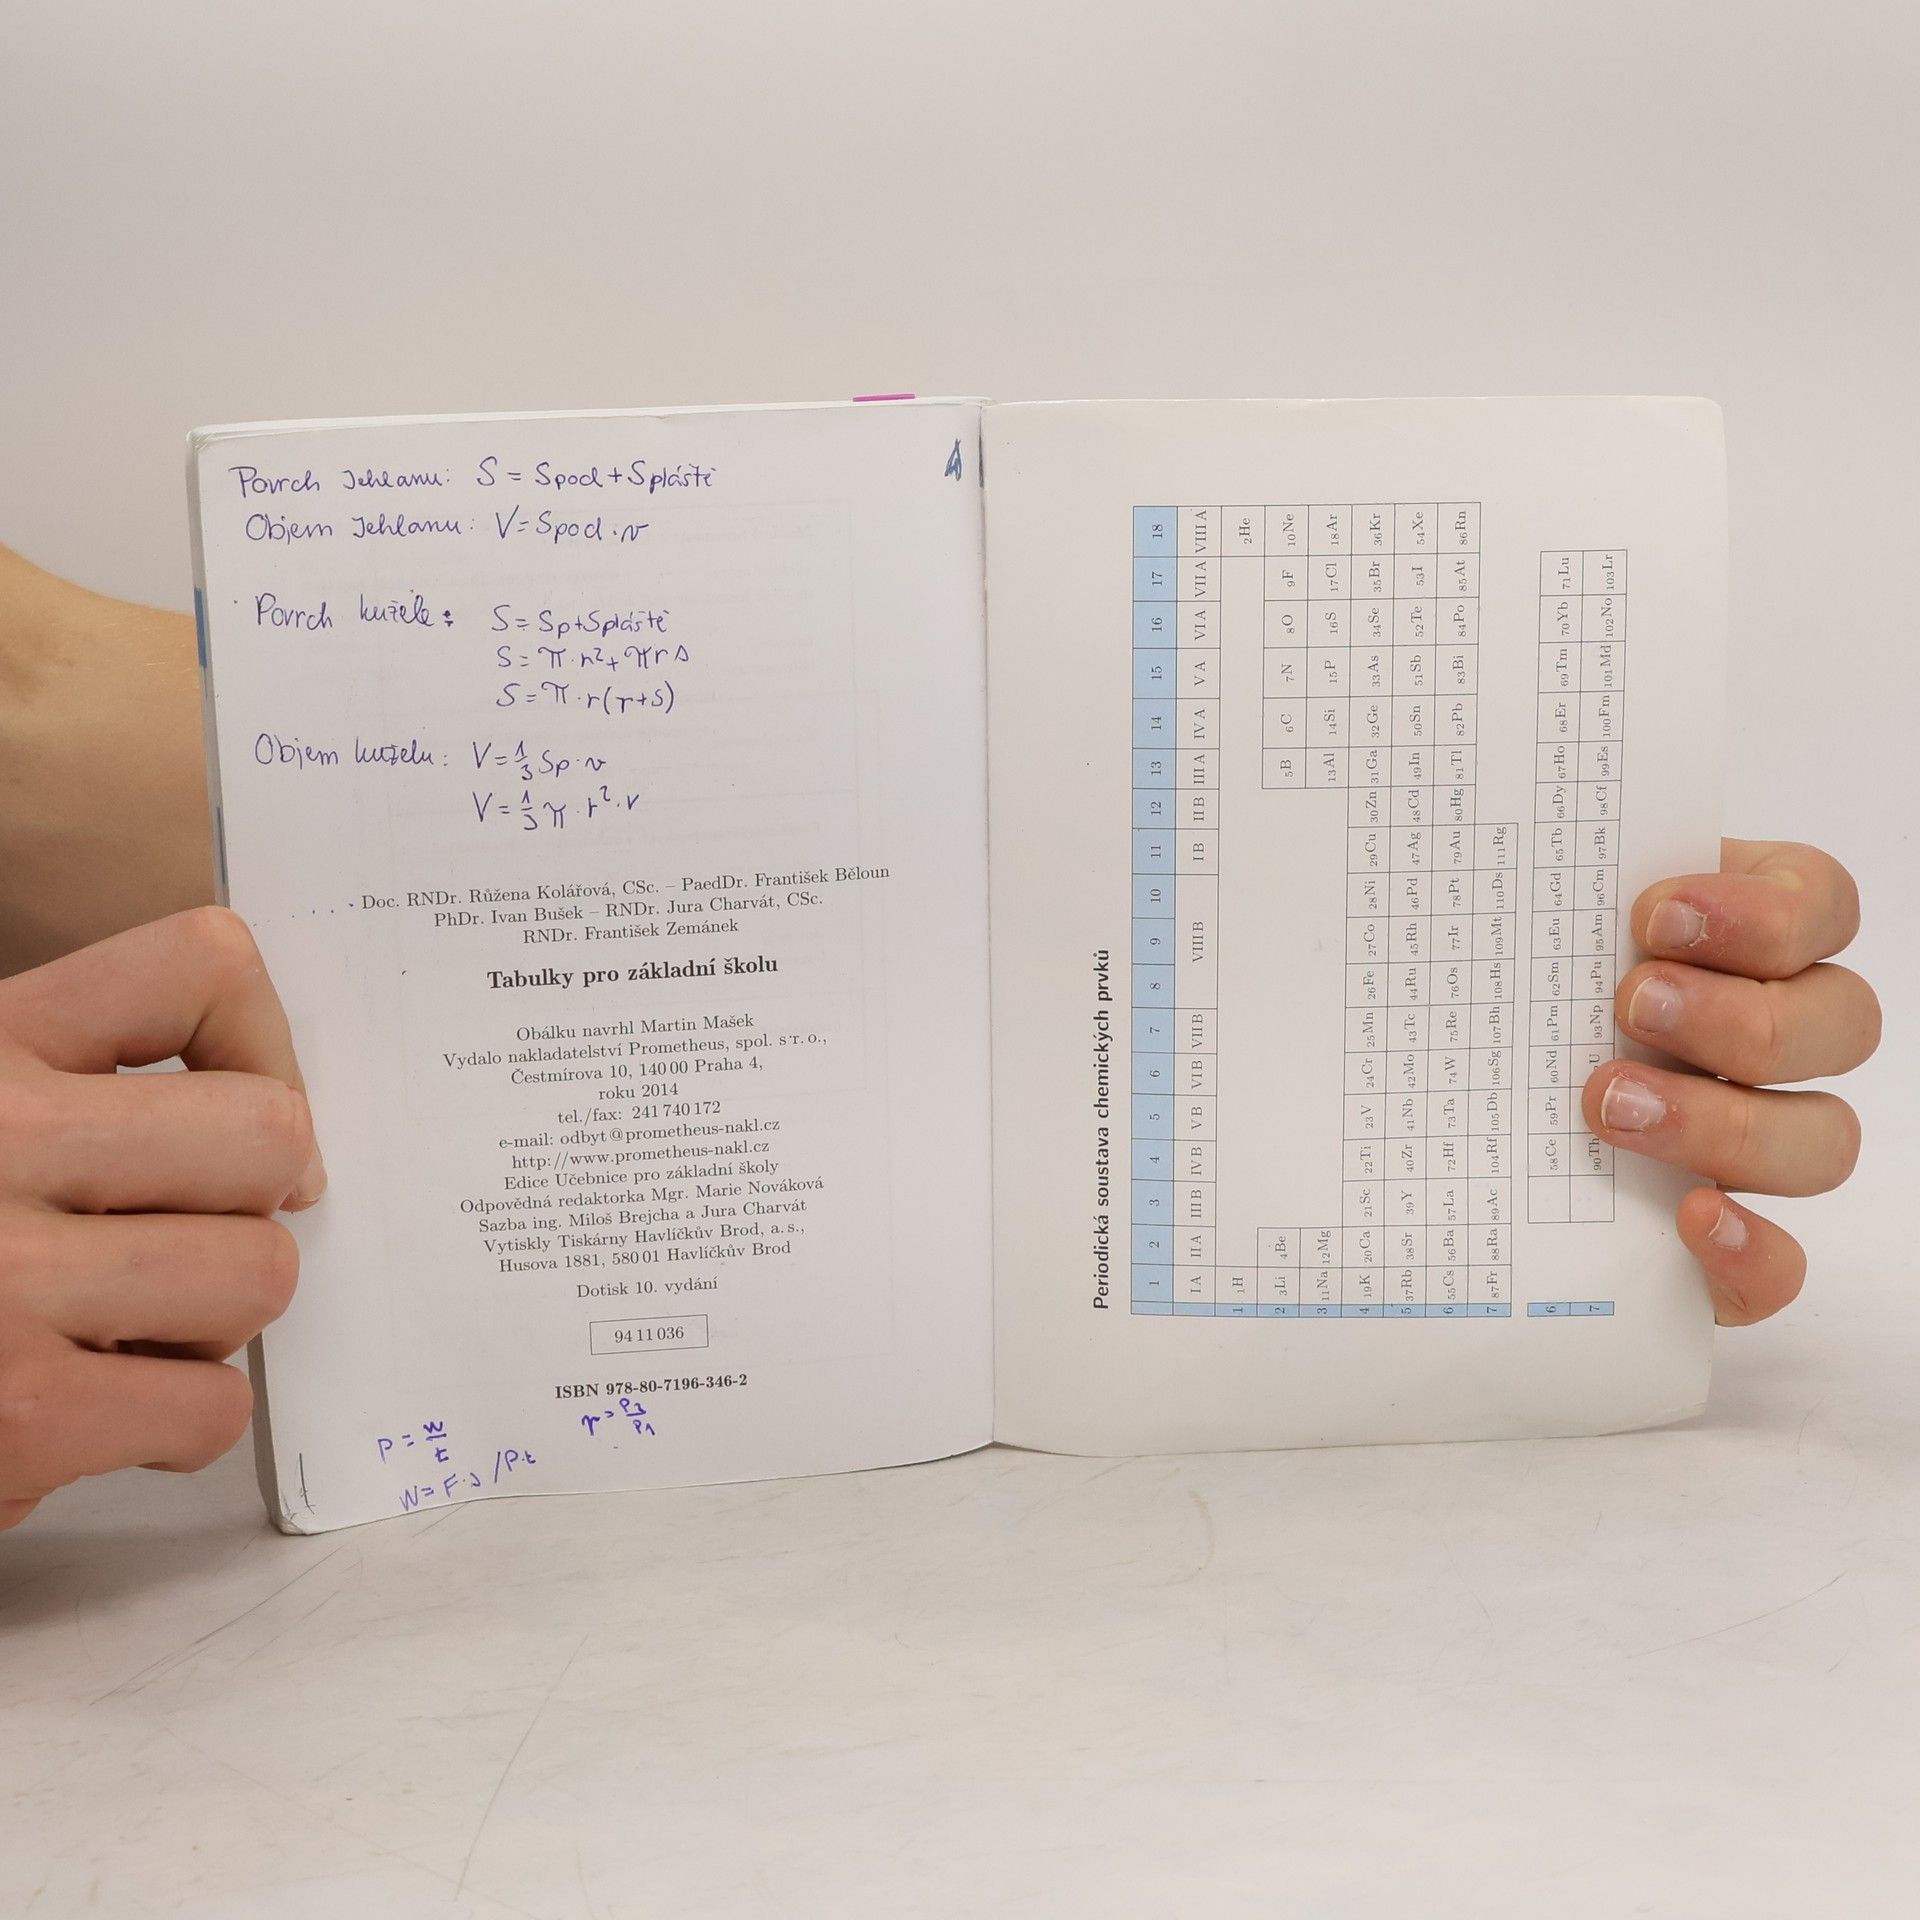 Povrch Jehlanu: S = Spod + Spláště
Objem Jehlanu: V = Spod · v
Povrch kužele: S = Sp + Spláště
S = π · r² + π r s
S = π · r (r + s)
Objem kuželu: V = 1/3 Sp · v
V = 1/3 π · r² · v
Doc. RNDr. Růžena Kolářová, CSc. – PaedDr. František Běloun
PhDr. Ivan Bušek – RNDr. Jura Charvát, CSc.
RNDr. František Zemánek
Tabulky pro základní školu
Obálku navrhl Martin Mašek
Vydalo nakladatelství Prometheus, spol. s r. o.,
Čestmírova 10, 140 00 Praha 4,
roku 2014
tel./fax: 241 740 172
e-mail: odbyt@prometheus-nakl.cz
http://www.prometheus-nakl.cz
Edice Učebnice pro základní školy
Odpovědná redaktorka Mgr. Marie Nováková
Sazba ing. Miloš Brejcha a Jura Charvát
Vytiskly Tiskárny Havlíčkův Brod, a. s.,
Husova 1881, 580 01 Havlíčkův Brod
Dotisk 10. vydání
94 11 036
ISBN 978-80-7196-346-2
P = W/t
W = F · s / P · t
Periodická soustava chemických prvků
1 2 3 4 5 6 7 8 9 10 11 12 13 14 15 16 17 18
I A II A III B IV B V B VI B VII B VIII B I B II B III A IV A V A VI A VII A VIII A
1 1H 2He
2 3Li 4Be 5B 6C 7N 8O 9F 10Ne
3 11Na 12Mg 13Al 14Si 15P 16S 17Cl 18Ar
4 19K 20Ca 21Sc 22Ti 23V 24Cr 25Mn 26Fe 27Co 28Ni 29Cu 30Zn 31Ga 32Ge 33As 34Se 35Br 36Kr
5 37Rb 38Sr 39Y 40Zr 41Nb 42Mo 43Tc 44Ru 45Rh 46Pd 47Ag 48Cd 49In 50Sn 51Sb 52Te 53I 54Xe
6 55Cs 56Ba 57La 72Hf 73Ta 74W 75Re 76Os 77Ir 78Pt 79Au 80Hg 81Tl 82Pb 83Bi 84Po 85At 86Rn
7 87Fr 88Ra 89Ac 104Rf 105Db 106Sg 107Bh 108Hs 109Mt 110Ds 111Rg
6 58Ce 59Pr 60Nd 61Pm 62Sm 63Eu 64Gd 65Tb 66Dy 67Ho 68Er 69Tm 70Yb 71Lu
7 90Th U 93Np 94Pu 95Am 96Cm 97Bk 98Cf 99Es 100Fm 101Md 102No 103Lr